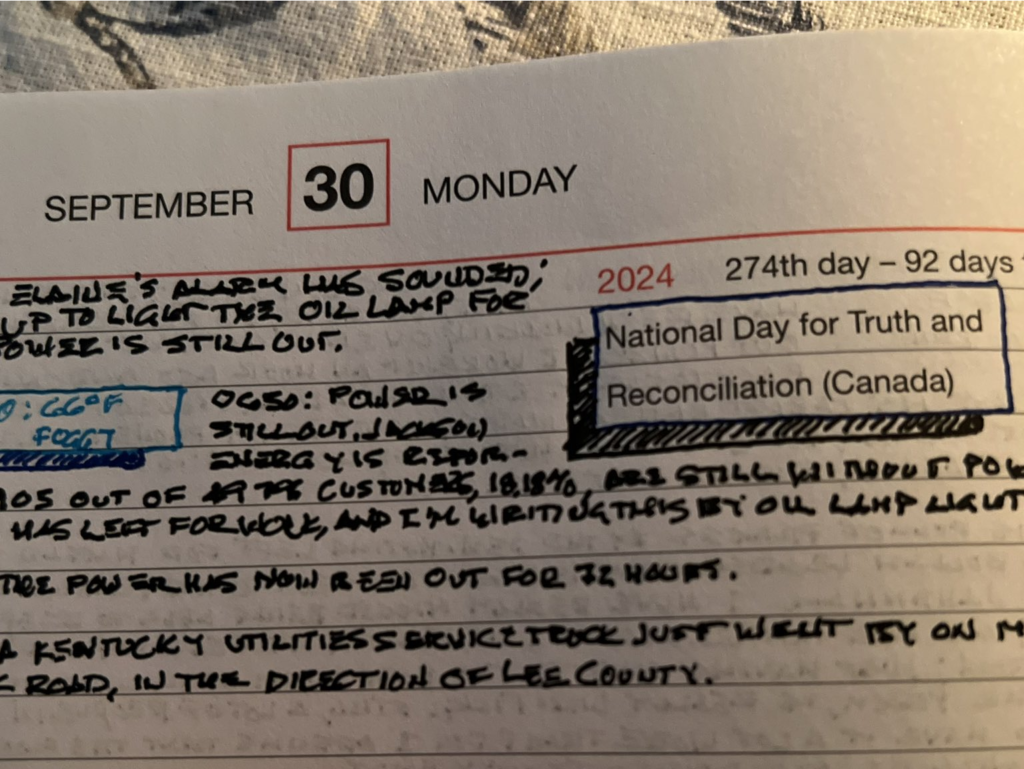 SEPTEMBER 30 MONDAY
2024 274th day – 92 days
ELAINE'S ALARM HAS SOUNDED;
UP TO LIGHT THE OIL LAMP FOR
POWER IS STILL OUT.
National Day for Truth and
Reconciliation (Canada)
: 66°F
FOGGY
0650: POWER IS
STILL OUT. JACKSON
ENERGY IS REPOR-
OUT OF CUSTOMERS, 18.18%, ARE STILL WITHOUT POW
HAS LEFT FOR WORK, AND I'M WRITING THIS BY OIL LAMP LIGHT
THE POWER HAS NOW BEEN OUT FOR 72 HOURS.
A KENTUCKY UTILITIES SERVICE TRUCK JUST WENT BY ON M
ROAD, IN THE DIRECTION OF LEE COUNTY.